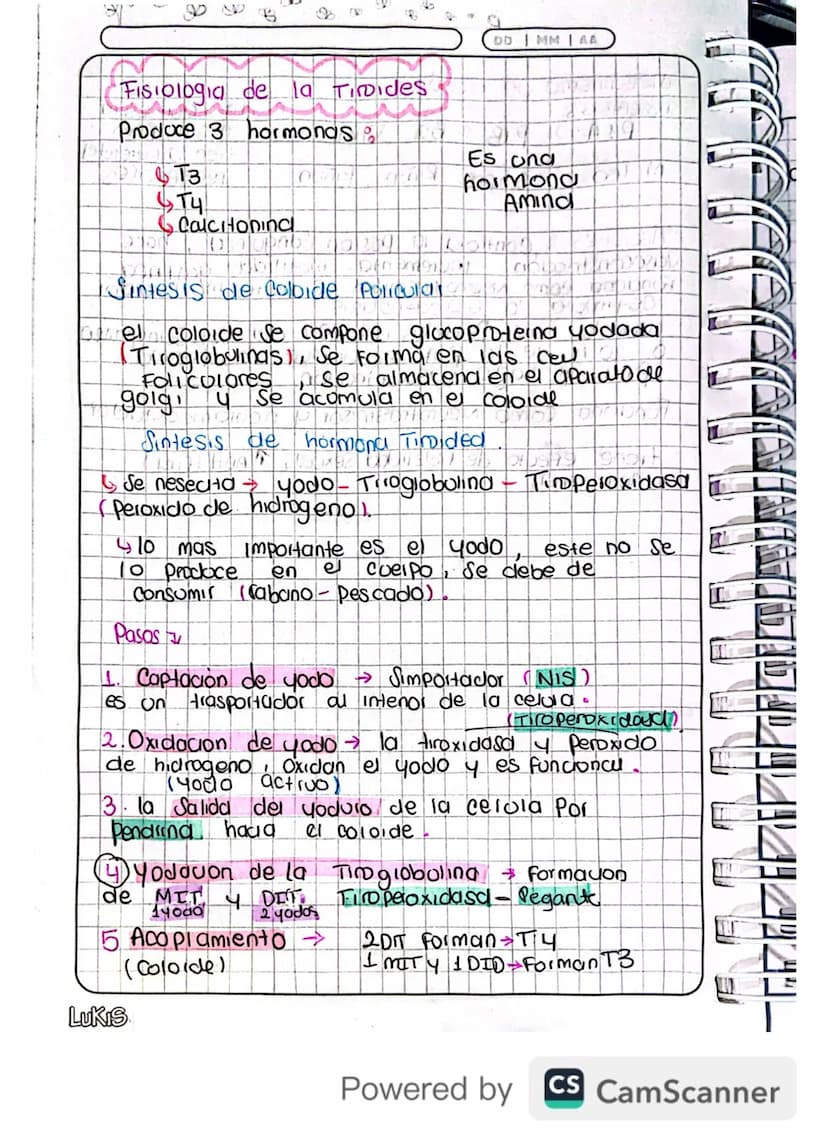 DD | MM | AA
Fisiologia de la Tiroides
Produce 3 hormonas:
↳ T3
↳ T4
↳ Calcitonina
Es una
hormona
Amina
Sintesis de Coloide Folicular
el coloide se compone glucoproteina yodada
(Tiroglobulinas), se forma en las cel
Folicolores, se almacena en el aparato de
golgi y se acomula en el coloide
Sintesis de hormona Tiroided.
↳ Se nesecita → yodo - Tiroglobolina - Tiroperoxidasa
(Peroxido de hidrogeno).
↳ lo mas importante es el yodo, este no se
lo produce en el cuerpo, se debe de
consumir (rabano - Pescado).
Pasos ↴
1. Captacion de yodo → Simportador (NIS)
es un trasportador al interior de la celula.
(Tiroperoxidasa)
2. Oxidacion de yodo → la tiroxidasa y peroxido
de hidrogeno, oxidan el yodo y es funcional.
(yodo activo)
3. la Salida del yoduro de la celola Por
Pendrina hacia el coloide.
4 Yodacion de la Tiroglobolina → formacion
de MIT y DIT. Tiroperoxidasa - Pegante
1 yodo 2 yodos
5 Acoplamiento → 2 DIT forman → T4
(Coloide) 1 MIT y 1 DID → Forman T3
LuKiS
Powered by CS CamScanner